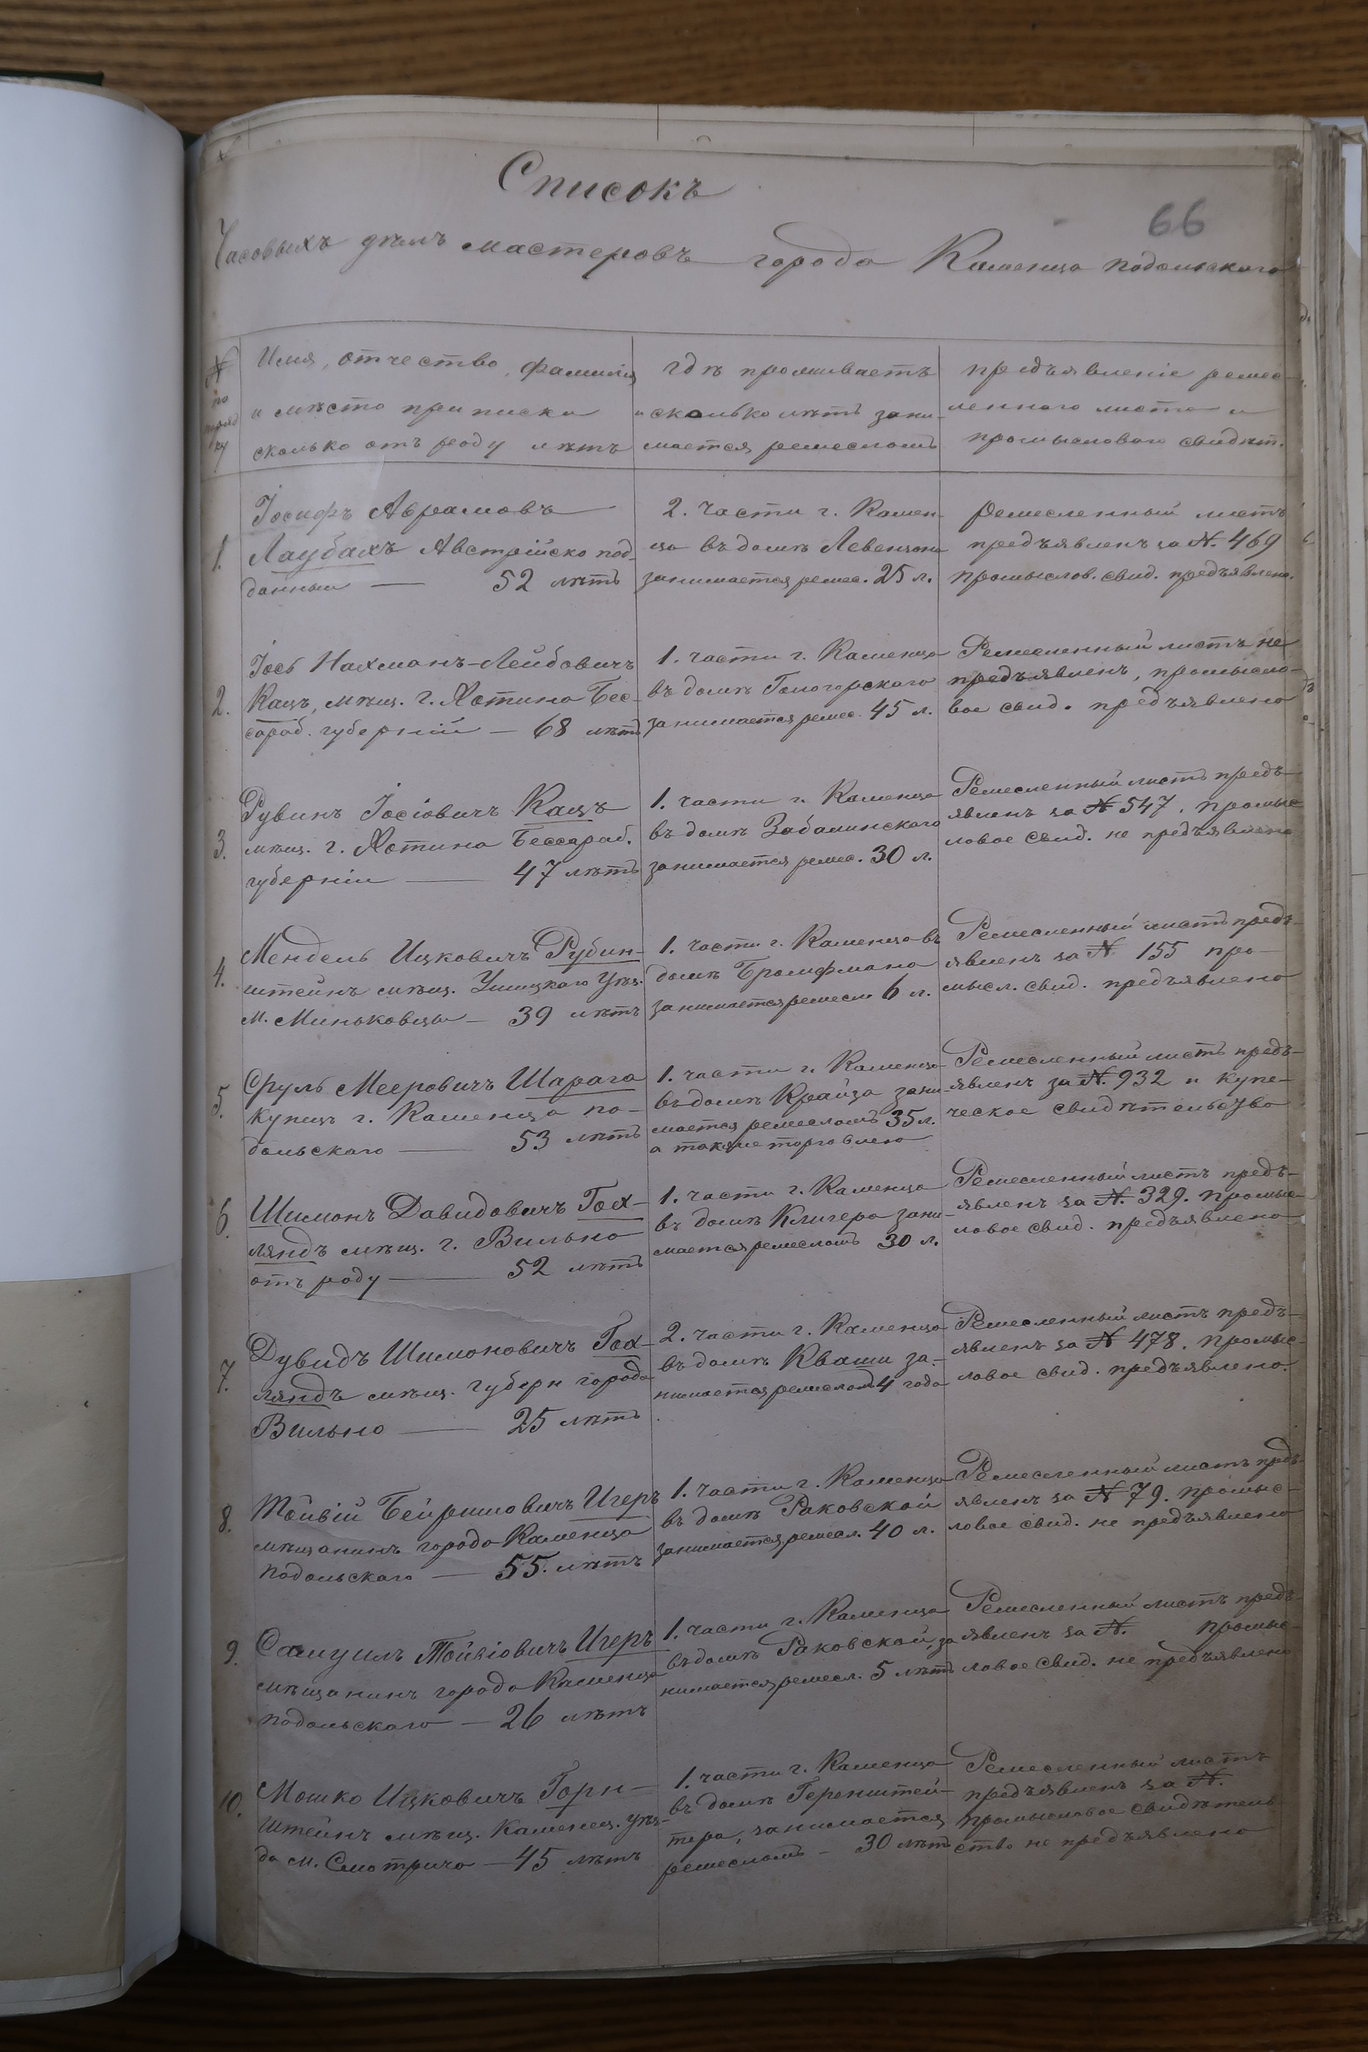 Списокъ
66
Часовыхъ дѣлъ мастеровъ города Каменца подольскаго
№ по поряд ку
Имя, отчество, фамилія
и мѣсто приписки
сколько отъ роду лѣтъ
гдѣ проживаетъ
и сколько лѣтъ зани-
мается ремесломъ
предъявленіе ремес-
леннаго листа и
промысловаго свидѣт.
1.
Іосифъ Абрамовъ
Лаубахъ Австрійско под-
данный — 52 лѣтъ
2. части г. Камен-
ца въ домѣ Левензона
занимается ремес. 25 л.
Ремесленный листъ
предъявленъ за №. 469
промыслов. свид. предъявлено.
2.
Іось Нахманъ-Лейбовичъ
Кацъ, мѣщ. г. Хотина Бес-
сараб. губерніи — 68 лѣтъ
1. части г. Каменца
въ домѣ Гоногорскаго
занимается ремес. 45 л.
Ремесленный листъ не
предъявленъ, промысло-
вое свид. предъявлено
3.
Рувинъ Іосіовичъ Кацъ
мѣщ. г. Хотина Бессараб.
губерніи — 47 лѣтъ
1. части г. Каменца
въ домѣ Забаминскаго
занимается ремес. 30 л.
Ремесленный листъ предъ-
явленъ за № 547. промыс-
ловое свид. не предъявлено
4.
Мендель Ицковичъ Рубин-
штейнъ мѣщ. Ушицкаго уѣз.
м. Миньковцы — 39 лѣтъ
1. части г. Каменца въ
домѣ Бромфмана
занимается ремесл 6 л.
Ремесленный листъ предъ-
явленъ за № 155 про-
мысл. свид. предъявлено
5.
Сруль Мееровичъ Шарага
купецъ г. Каменца по-
дольскаго — 53 лѣтъ
1. части г. Каменца
въ домѣ Крайза зани-
мается ремесломъ 35 л.
а также торговлею
Ремесленный листъ предъ-
явленъ за №. 932 и купе-
ческое свидѣтельство
6.
Шимонъ Давидовичъ Гох-
ляндъ мѣщ. г. Вильно
отъ роду — 52 лѣтъ
1. части г. Каменца
въ домѣ Клигера зани-
мается ремесломъ 30 л.
Ремесленный листъ предъ-
явленъ за №. 329. промыс-
ловое свид. предъявлено
7.
Дувидъ Шимоновичъ Гох-
ляндъ мѣщ. губерн города
Вильно — 25 лѣтъ
2. части г. Каменца
въ домѣ Кваши за-
нимается ремесломъ 4 года
Ремесленный листъ предъ-
явленъ за № 478. промыс-
ловое свид. предъявлено.
8.
Тойвій Бейришовичъ Игеръ
мѣщанинъ города Каменца
подольскаго — 55. лѣтъ
1. части г. Каменца
въ домѣ Раковской
занимается ремесл. 40 л.
Ремесленный листъ предъ-
явленъ за № 79. промыс-
ловое свид. не предъявлено
9.
Самуилъ Тойвіовичъ Игеръ
мѣщанинъ города Каменца
подольскаго — 26 лѣтъ
1. части г. Каменца
въ домѣ Раковской, за
нимается ремесл. 5 лѣтъ
Ремесленный листъ предъ-
явленъ за №. промыс-
ловое свид. не предъявлено
10.
Мошко Ицковичъ Горн-
штейнъ мѣщ. Каменец. уѣз-
да м. Смотрича — 45 лѣтъ
1. части г. Каменца
въ домѣ Геренштей-
тера, занимается
ремесломъ — 30 лѣтъ
Ремесленный листъ
предъявленъ за №.
промысловое свидѣтель
ство не предъявлено